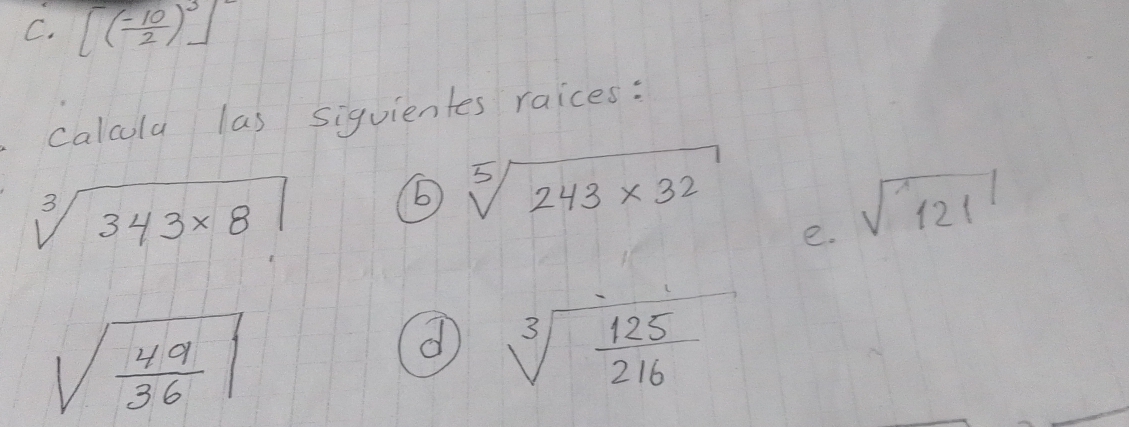 c. [(-10/2)³]
Calcula las siguientes raices:
³√343×8 ⓑ ⁵√243×32 e. √121
√49/36 ⓓ ³√125/216